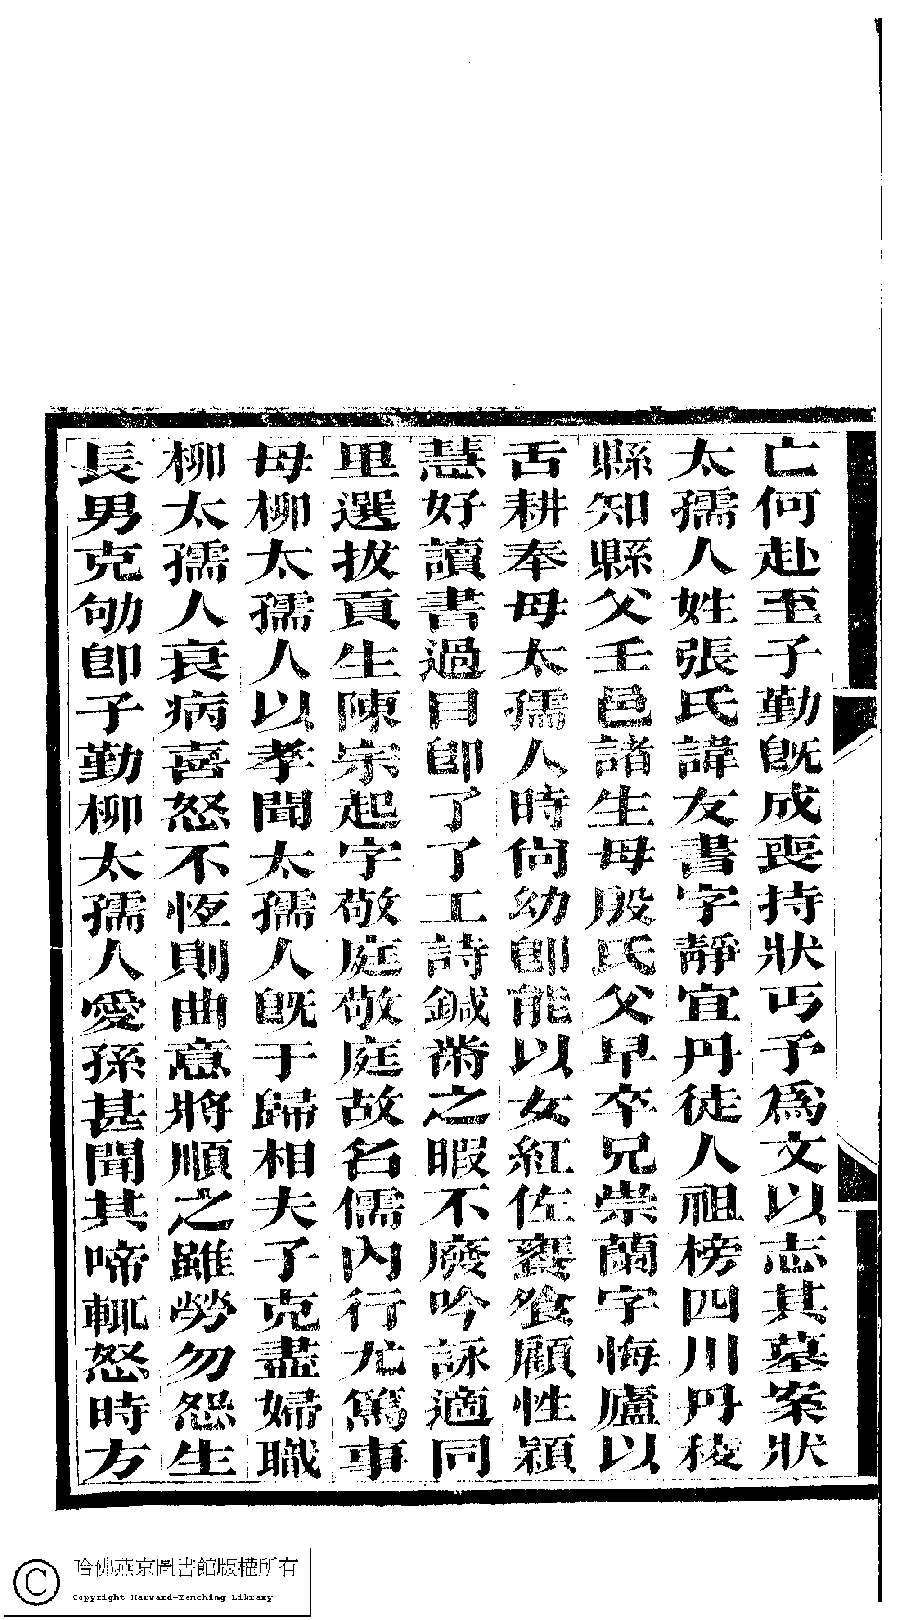 亡何赴至子勤旣成喪持狀丐予爲文以志其墓案狀
太孺人姓張氏諱友書字靜宜丹徒人祖榜四川丹稜
縣知縣父壬邑諸生母殷氏父早卒兄崇蘭字悔廬以
舌耕奉母太孺人時尙幼卽能以女紅佐饔飱顧性穎
慧好讀書過目卽了了工詩鍼黹之暇不廢吟詠適同
里選拔貢生陳宗起字敬庭敬庭故名儒內行尤篤事
母柳太孺人以孝聞太孺人旣于歸相夫子克盡婦職
柳太孺人衰病喜怒不恆則曲意將順之雖勞勿怨生
長男克劬卽子勤柳太孺人愛孫甚聞其啼輒怒時方
哈佛燕京圖書館版權所有
Copyright Harvard-Yenching Library